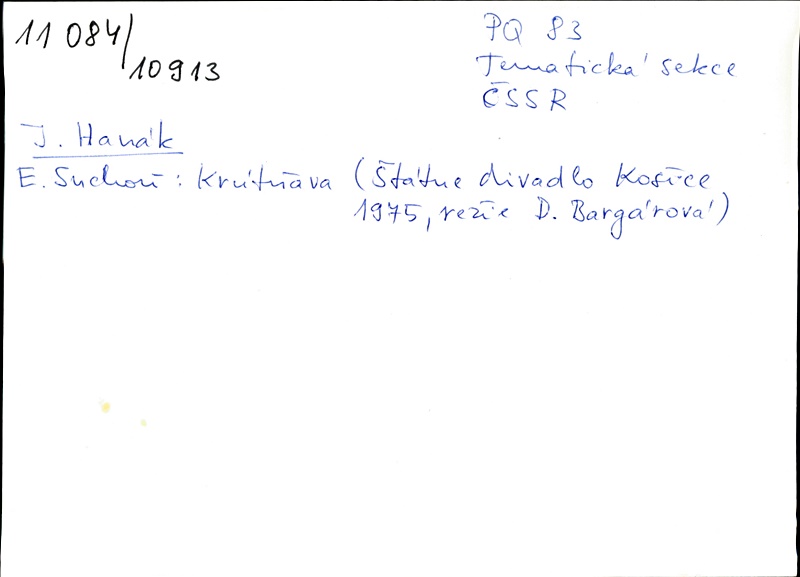 11 084/
10913
PQ 83
Tematická sekce
ČSSR
J. Hanák
E. Suchoň: Krútňava (Štátne divadlo Košice
1975, režie D. Bargárová)